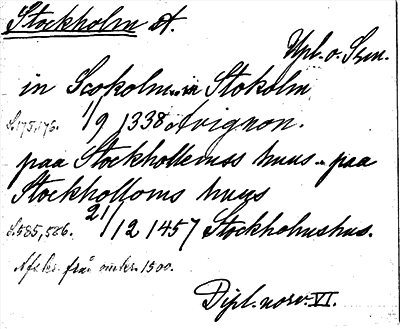 Stockholm st.
Upl. o. Szm.
in Scokolm .. in Stokolm
S. 175, 176. 1/9 1338 Avignon.
paa Stockhollemss huus .. paa
Stockholloms huus
S. 585, 586. 21/12 1457 Stockholmshus.
Afskr. från omkr. 1500.
Dipl. norv. VI.